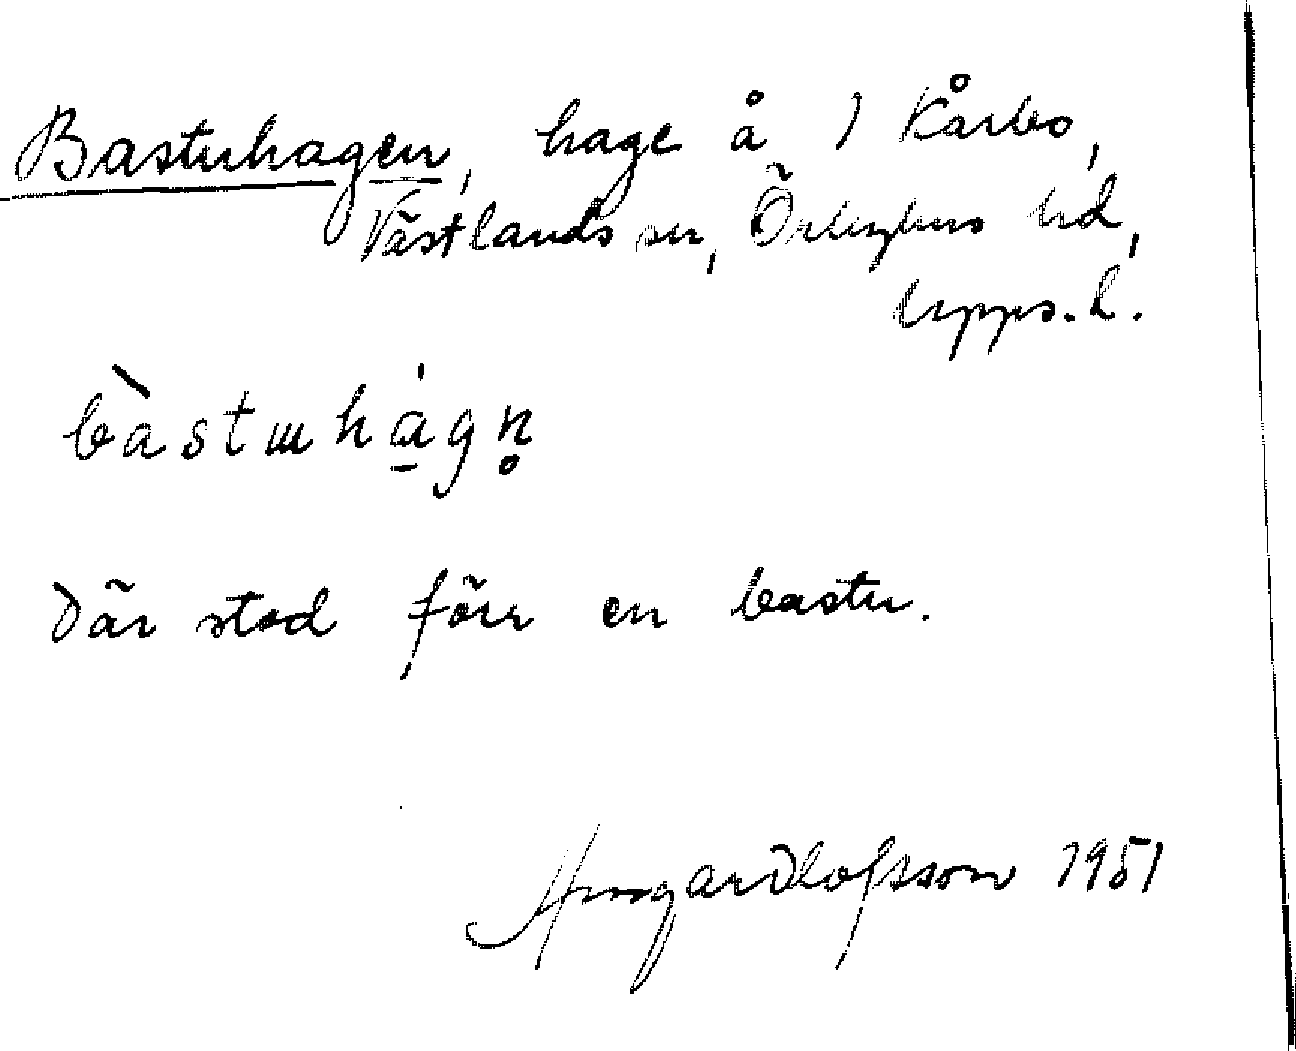 Bastuhagen, hage å 1 Kårbo,
Västlands sn, Örbyhus hd,
Upps. l.
bàstɯhágn̥
Där stod förr en bastu.
Olofsson 1951